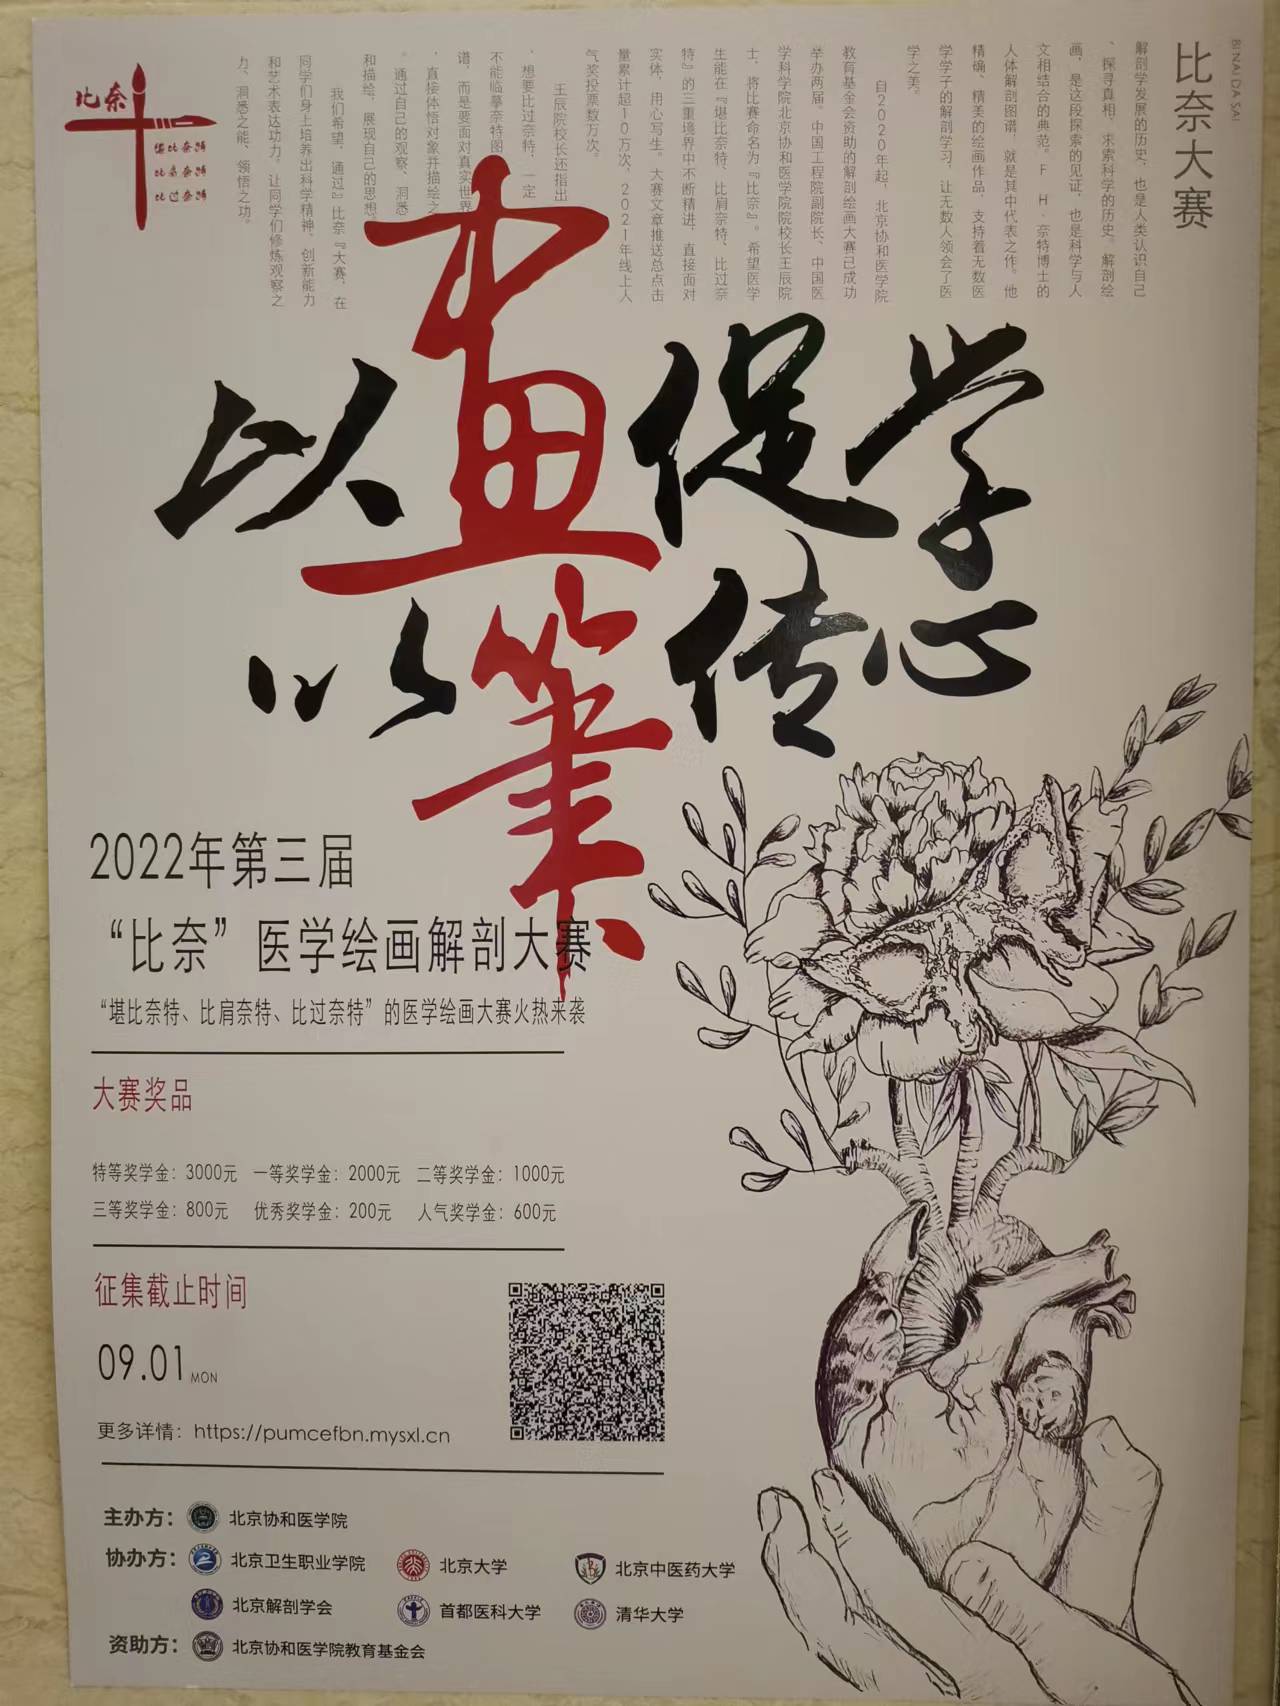 比奈大赛
BI NAI DA SAI
解剖学发展的历史，也是人类认识自己
、探寻真相、求索科学的历史。解剖绘
画，是这段探索的见证，也是科学与人
文相结合的典范。F H·奈特博士的
人体解剖图谱，就是其中代表之作。他
精确、精美的绘画作品，支持着无数医
学学子的解剖学习，让无数人领会了医
学之美。
自2020年起，北京协和医学院
教育基金会资助的解剖绘画大赛已成功
举办两届。中国工程院副院长、中国医
学科学院北京协和医学院院校长王辰院
士，将比赛命名为『比奈』。希望医学
生能在『堪比奈特、比肩奈特、比过奈
特』的三重境界中不断精进，直接面对
实体，用心写生。大赛文章推送总点击
量累计超10万次，2021年线上人
气奖投票数万次。
王辰院校长还指出
、想要比过奈特，一定
不能临摹奈特图
谱，而是要面对真实世界
，直接体悟对象并描绘之
。通过自己的观察、洞悉
和描绘，展现自己的思想。
我们希望，通过』比奈『大赛，在
同学们身上培养出科学精神、创新能力
和艺术表达功力。让同学们修炼观察之
力、洞悉之能、领悟之功。
比奈
堪比奈特
比肩奈特
比过奈特
以畫促学
以筆传心
2022年第三届
“比奈”医学绘画解剖大赛
“堪比奈特、比肩奈特、比过奈特”的医学绘画大赛火热来袭
大赛奖品
特等奖学金：3000元 一等奖学金：2000元 二等奖学金：1000元
三等奖学金：800元 优秀奖学金：200元 人气奖学金：600元
征集截止时间
09.01 MON
更多详情：https://pumcefbn.mysxl.cn
主办方： 北京协和医学院
协办方： 北京卫生职业学院 北京大学 北京中医药大学
北京解剖学会 首都医科大学 清华大学
资助方： 北京协和医学院教育基金会